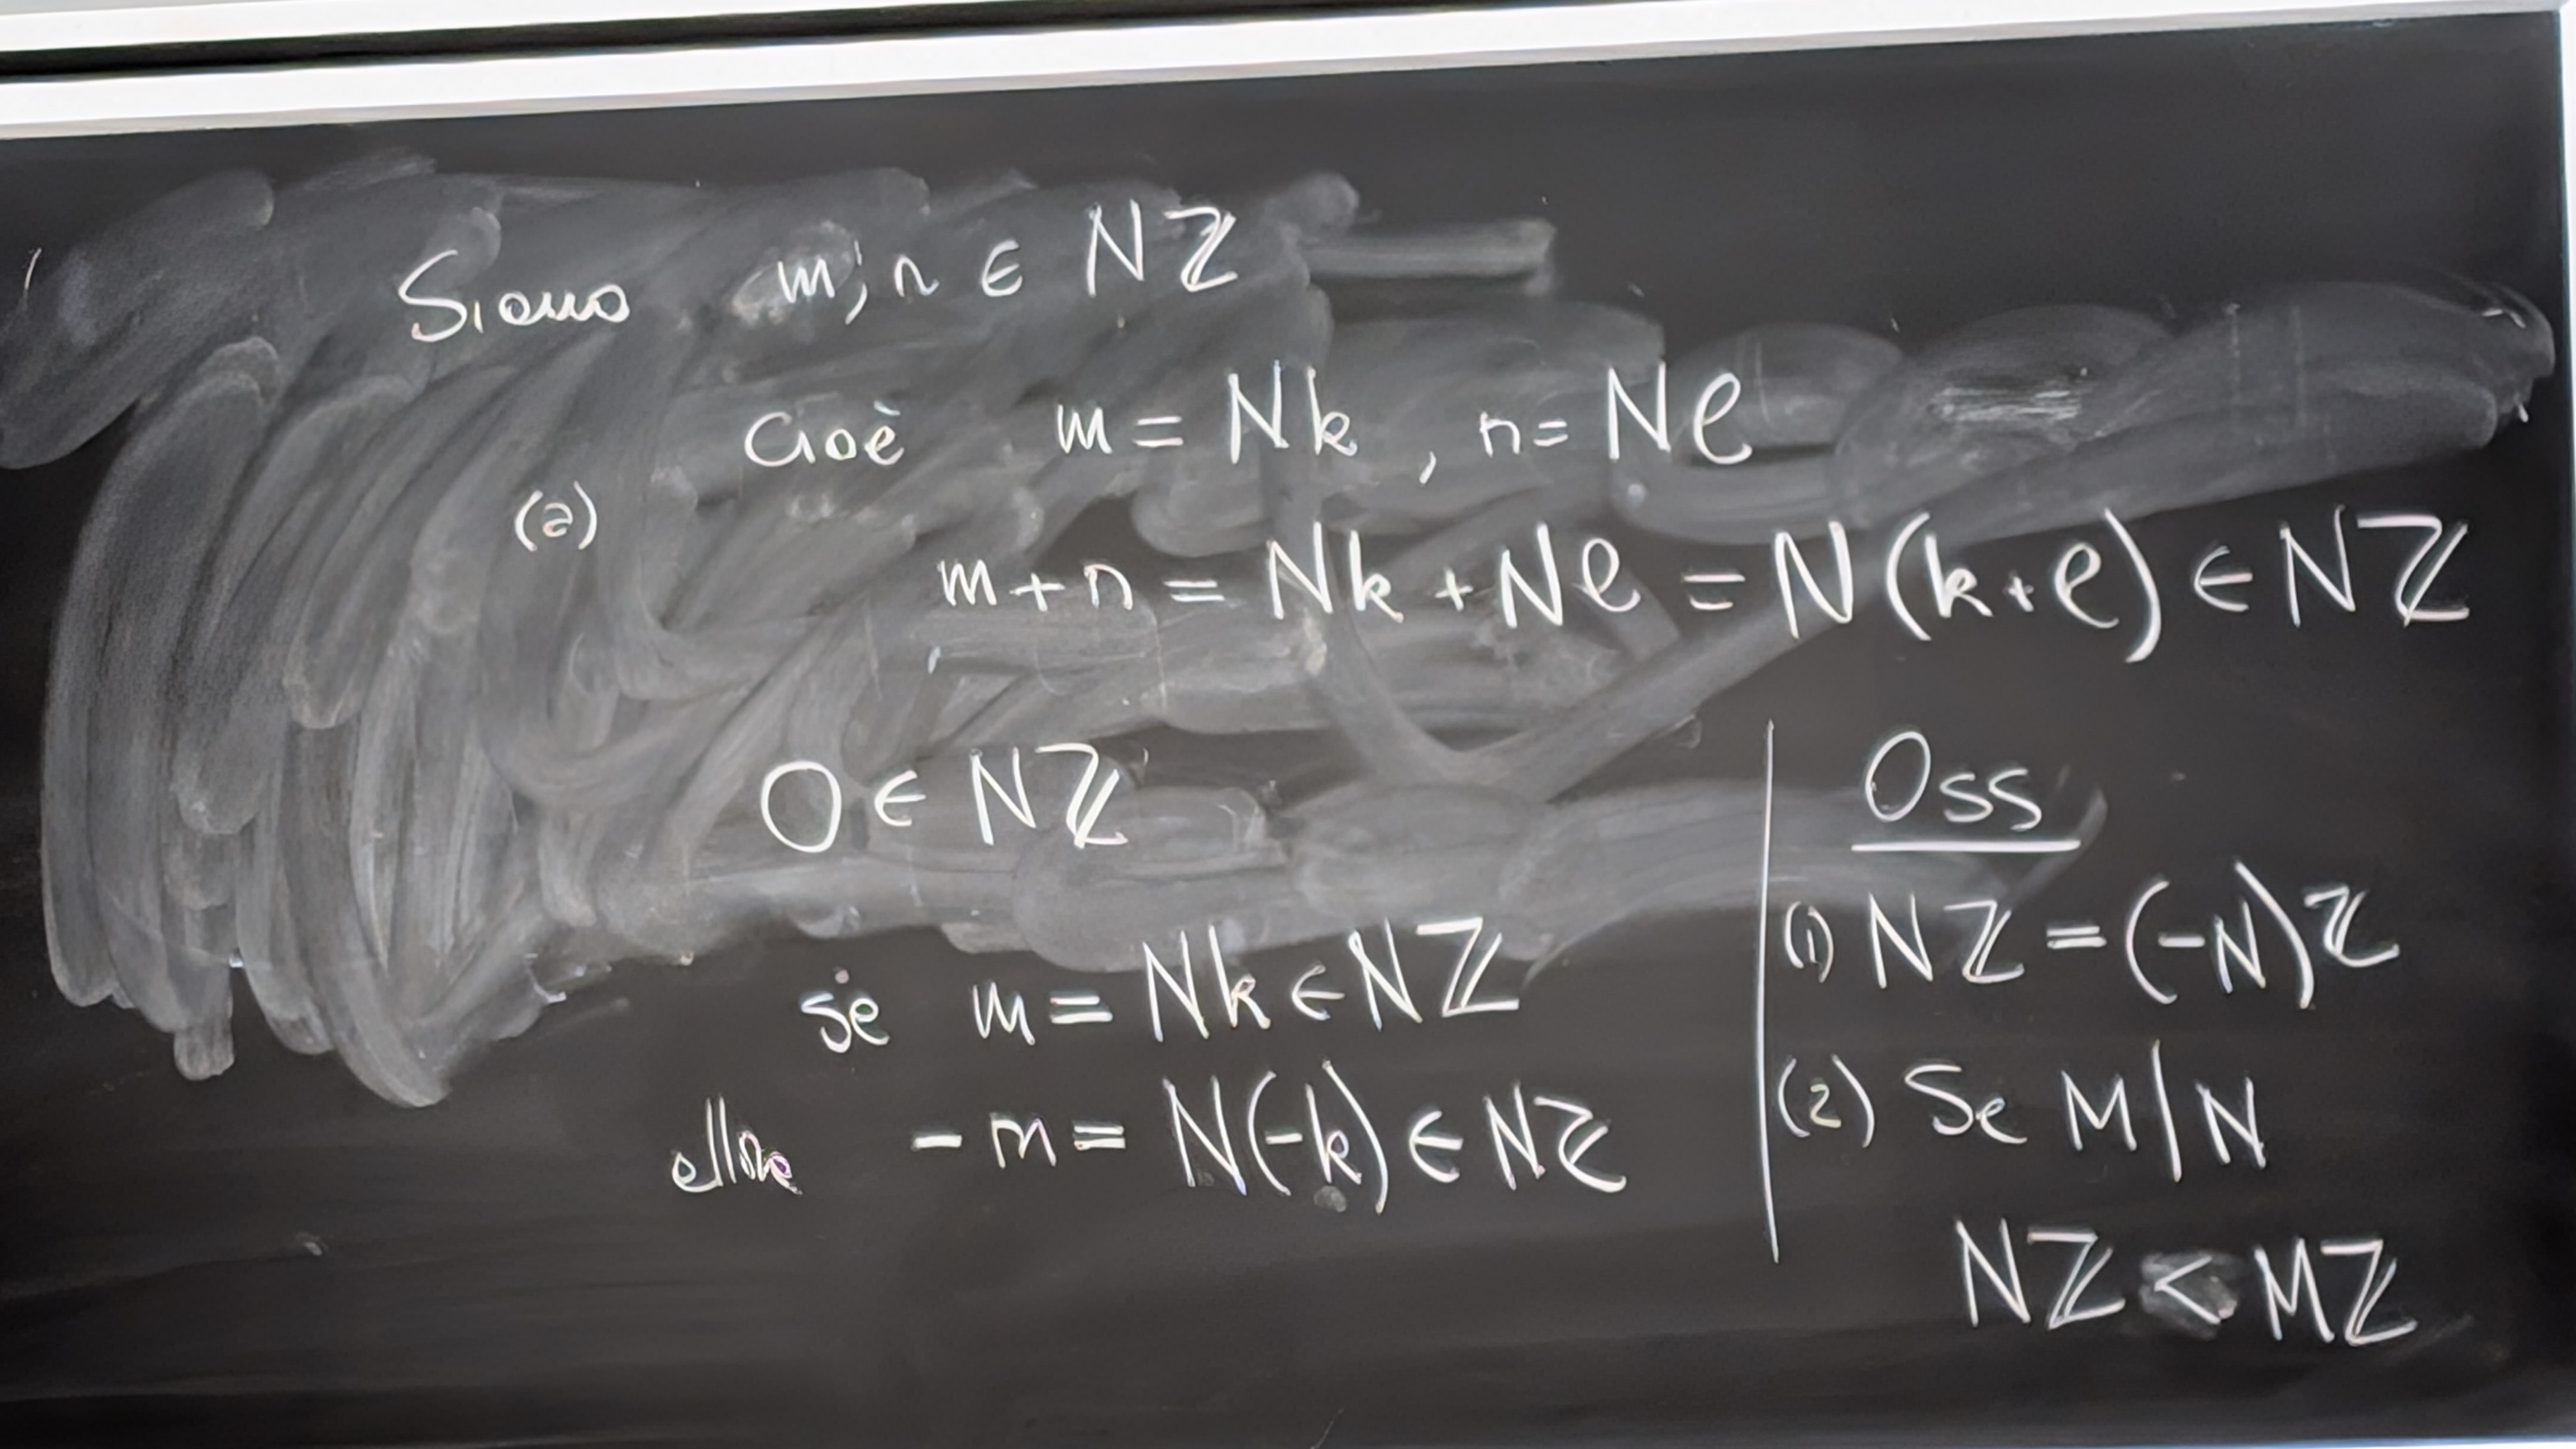 Siano m, n ∈ Nℤ
Cioè m = Nk , n = Nℓ
(a)
m + n = Nk + Nℓ = N(k+ℓ) ∈ Nℤ
0 ∈ Nℤ
se m = Nk ∈ Nℤ
allora -m = N(-k) ∈ Nℤ
Oss
(1) Nℤ = (-N)ℤ
(2) Se M|N
Nℤ < Mℤ